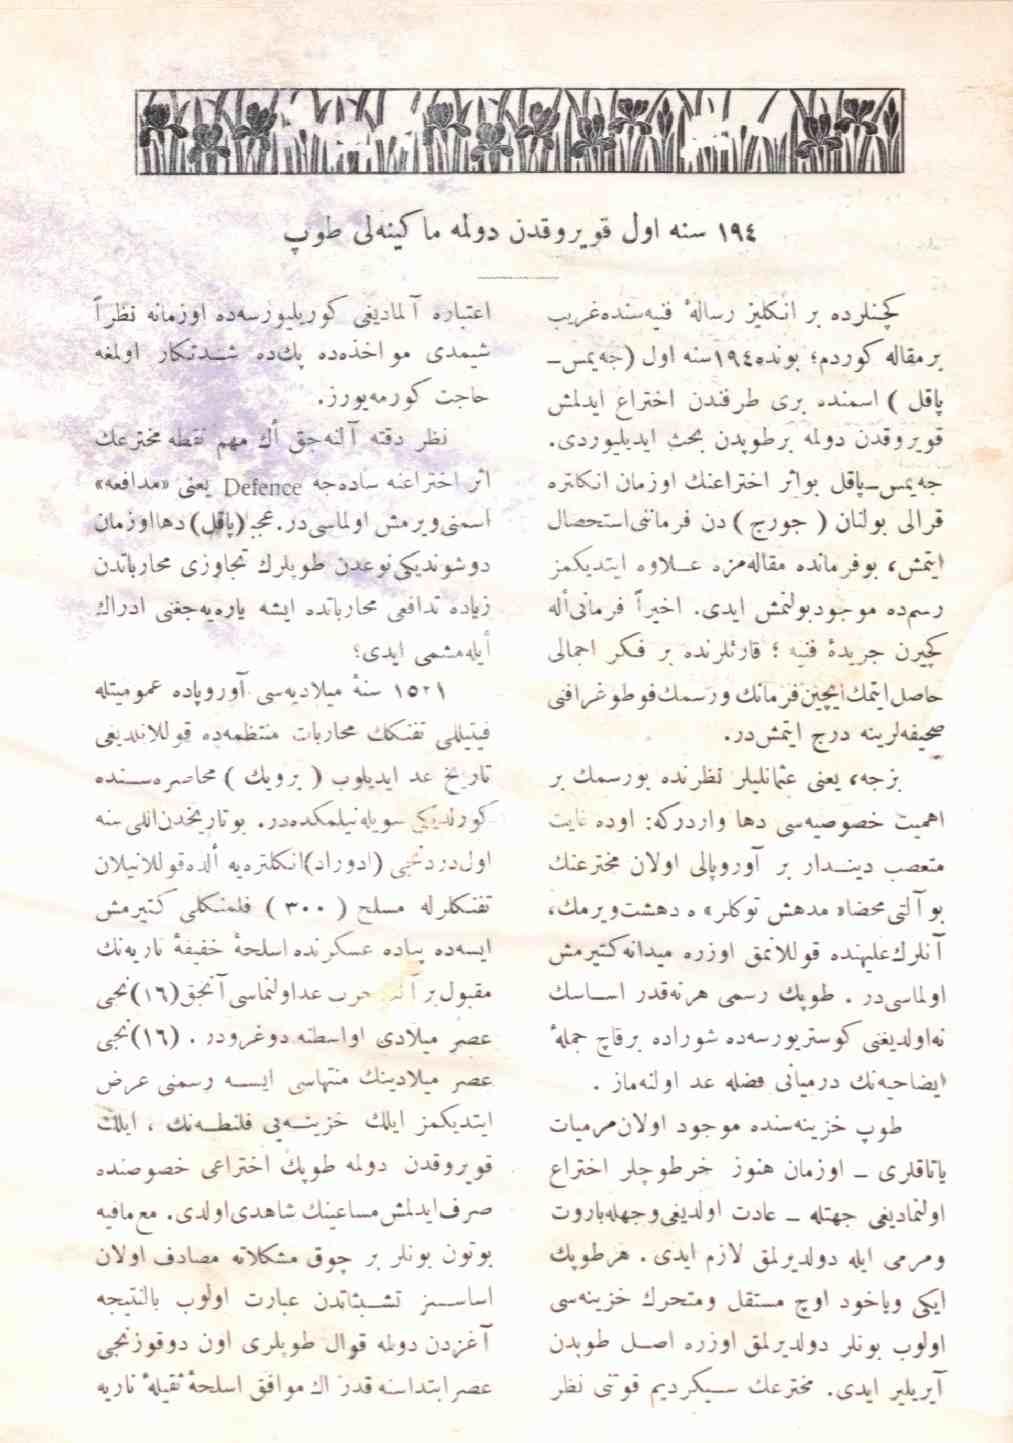 ١٩٤ سنه اول قويروقدن دولمه ماكينه‌لى طوپ
كچنلرده بر انكليز رسالهٔ فنيه‌سنده غريب
بر مقاله كوردم؛ بوندن ١٩٤ سنه اول (جه‌يمس ـ
پاقل ) اسمنده برى طرفندن اختراع ايدلمش
قويروقدن دولمه بر طوپدن بحث ايديليوردى.
جه‌يمس ـ پاقل بو اثر اختراعنك اوزمان انكلتره
قرالى بولنان ( جورج ) دن فرماننى استحصال
ايتمش، بو فرمانده مقاله‌مزه عـلاوه ايتديكمز
رسم‌ده موجود بولنمش ايدى. اخيراً فرمانى أله
كچيرن جريدهٔ فنيه ؛ قارئلرنده بر فكر اجمالى
حاصل ايتمك ايچين فرمانك و رسمك فوطوغرافنى
صحيفه‌لرينه درج ايتمش‌در.
بزجه، يعنى عثمانليلر نظرنده بورسمك بر
اهميت خصوصيه‌سى دها واردركه: اوده غايت
متعصب دينـدار بر آوروپالى اولان مخترعنك
بو آلتى محضا« مدهش توكلر» ه دهشت ويرمك،
آنلرك عليهنده قوللانمق اوزره ميدانه كتيرمش
اولماسى‌در . طوپك رسمى هرنه‌قدر اسـاسك
نه‌اولديغنى كوستريورسه‌ده شوراده برقاچ جملهٔ
ايضاحيه‌نك درميانى فضله عد اولنه‌ماز .
طوپ خزينه‌سنده موجود اولان مرميات
ياتاقلرى ـ اوزمان هنوز خرطوجلر اختراع
اولنماديغى جهتله ـ عادت اولديغى وجهله باروت
و مرمى ايله دولديرلمق لازم ايدى . هر طوپك
ايكى وياخود اوچ مستقل ومتحرك خزينه‌سى
اولوب بونلر دولديرلمق اوزره اصـل طوپدن
آيريلير ايدى. مخترعك سـيكرديم قوتنى نظر
اعتباره آلماديغى كوريليورسه‌ده اوزمانه نظراً
شيمدى مواخذه‌ده پك‌ده شـدتكار اولمغه
حاجت كورمه‌يورز.
نظر دقته آلنه‌جق أك مهم نقطه مخترعك
اثر اختراعنه ساده‌جه Defence يعنى «مدافعه»
اسمنى ويرمش اولماسى‌در. عجبا (پاقل) دها اوزمان
دوشونديكى نوعدن طوپلرك تجاوزى محارباتدن
زياده تدافعى محارباتده ايشه يارە‌يه‌جغنى ادراك
أيله‌مشمى ايدى؟
١٥٢١ سنهٔ ميلاديه‌سى آوروپاده عموميتله
فيتيللى تفنكك محاربات منتظمه‌ده قوللانلديغى
تاريخ عد ايديلوب ( برويك ) محاصره‌سـنده
كورلديكى سويله‌نيلمكده‌در. بو تاريخدن اللى سنه
اول دردنجى (ادوراد) انكلتره‌يه ألده قوللانيلان
تفنكلرله مسلح ( ٣٠٠ ) فلمنكلى كتيرمش
ايسه‌ده پياده عسكرنده اسلحهٔ خفيفهٔ ناريه‌نك
مقبول بر آلت حرب عداولنماسى آنجق (١٦)نجى
عصر ميلادى اواسطنه دوغرودر . (١٦)نجى
عصر ميلادينك منتهاسى ايسـه رسمنى عرض
ايتديكمز ايلك خزينـه‌يى فلنطـه‌نك ، ايلك
قويروقدن دولمه طوپك اختراعى خصوصنده
صرف ايدلمش مساعينك شاهدى اولدى. مع‌مافيه
بوتون بونلر بر چوق مشكلاته مصادف اولان
اساسـز تشـبثاتدن عبارت اولوب بالنتيجه
آغزدن دولمه قوال طوپلرى اون دوقوزنجى
عصر ابتداسنه قدر اك موافق اسلحهٔ ثقيلهٔ ناريه